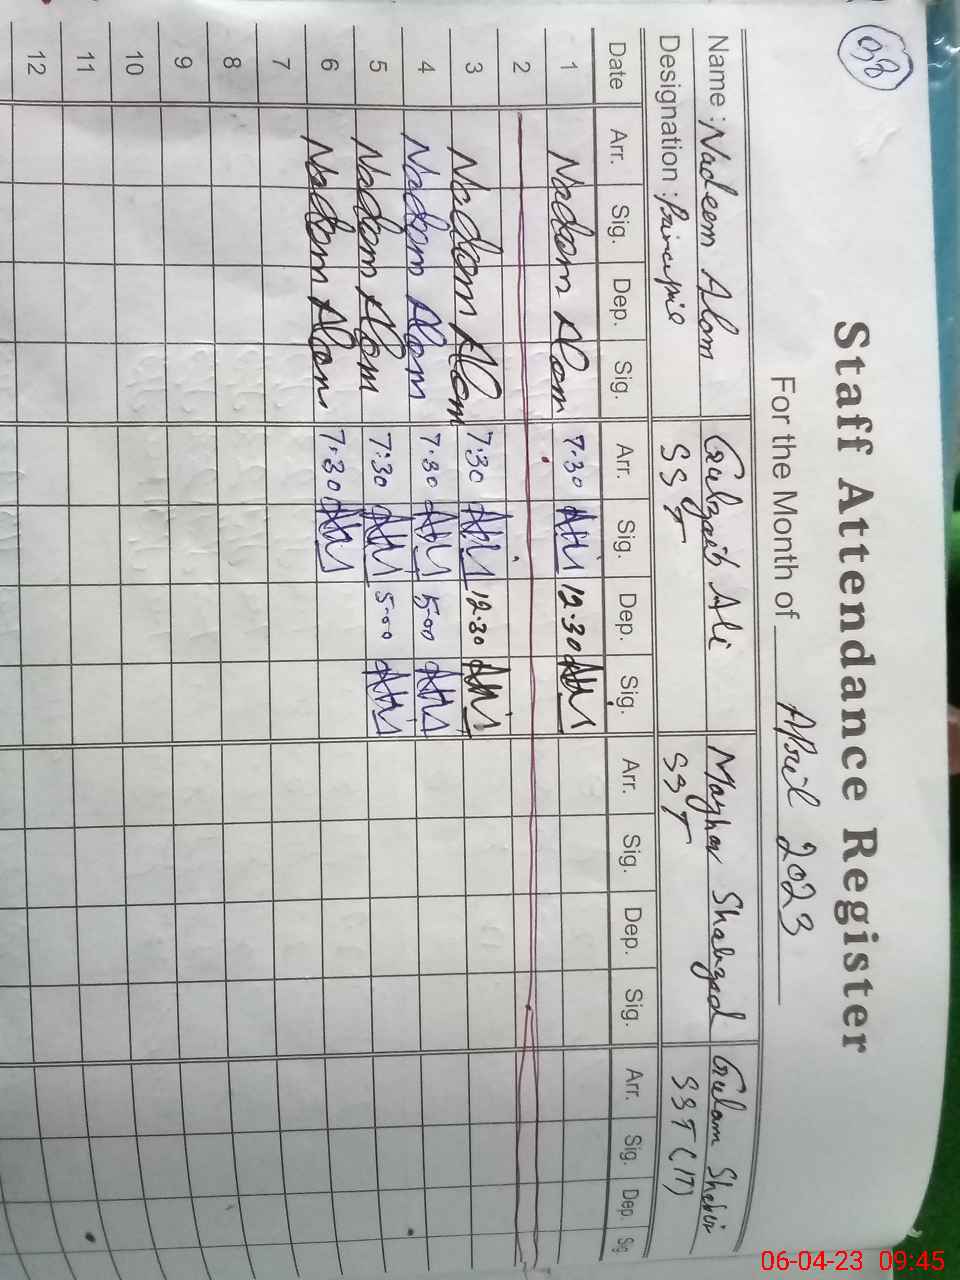 038
Staff Attendance Register
For the Month of April 2023
Name : Nadeem Alam Gulzaib Ali Mazhar Shahzad Gulam Shabir
Designation : SST SST SST (IT)
Date Arr. Sig. Dep. Sig. Arr. Sig. Dep. Sig. Arr. Sig. Dep. Sig. Arr. Sig. Dep. Sig
1 Nadeem Alam 7.30 Ali 12.30 Ali
2
3 Nadeem Alam 7:30 Ali 12.30 Ali
4 Nadeem Alam 7.30 Ali 5.00 Ali
5 Nadeem Alam 7:30 Ali 5.00 Ali
6 Nadeem Alam 7.30 Ali
7
8
9
10
11
12
06-04-23 09:45